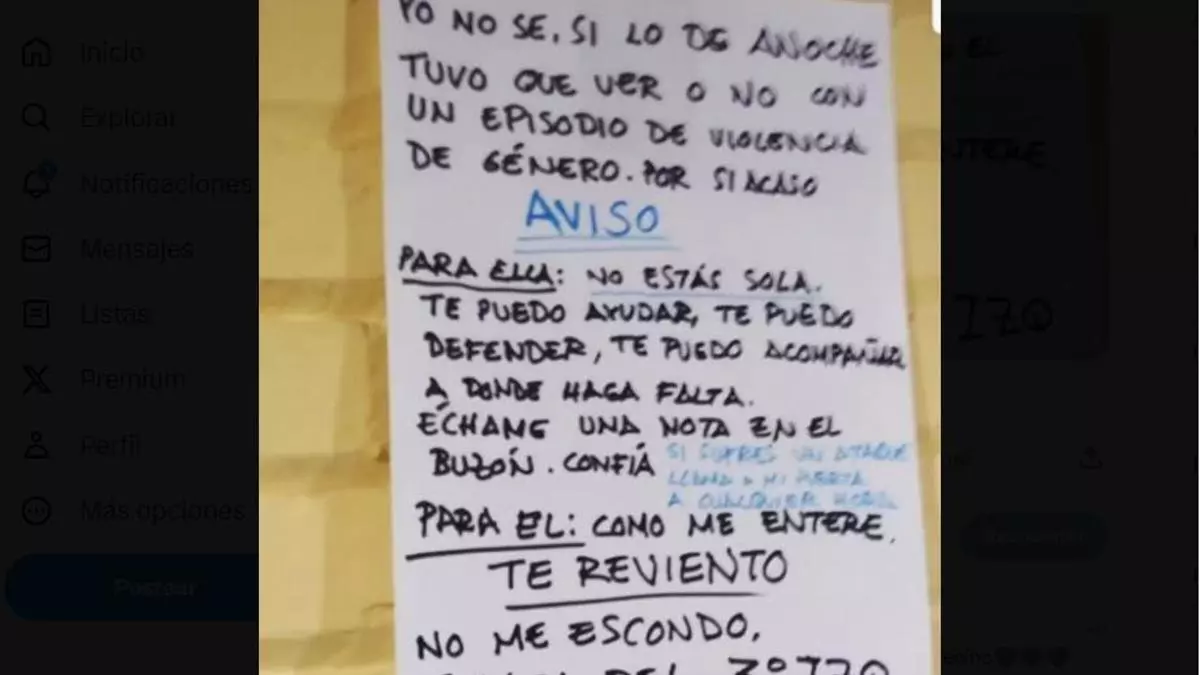 Inicio
Explorar
Notificaciones
Mensajes
Listas
Premium
Perfil
Más opciones
Postear
YO NO SE, SI LO DE ANOCHE
TUVO QUE VER O NO CON
UN EPISODIO DE VIOLENCIA
DE GÉNERO. POR SI ACASO
AVISO
PARA ELLA: NO ESTÁS SOLA.
TE PUEDO AYUDAR, TE PUEDO
DEFENDER, TE PUEDO ACOMPAÑAR
A DONDE HAGA FALTA.
ÉCHAME UNA NOTA EN EL
BUZÓN. CONFÍA
SI SUFRES UN ATAQUE
LLAMA A MI PUERTA
A CUALQUIER HORA
PARA EL: COMO ME ENTERE.
TE REVIENTO
NO ME ESCONDO,
DEL 3º IZQ